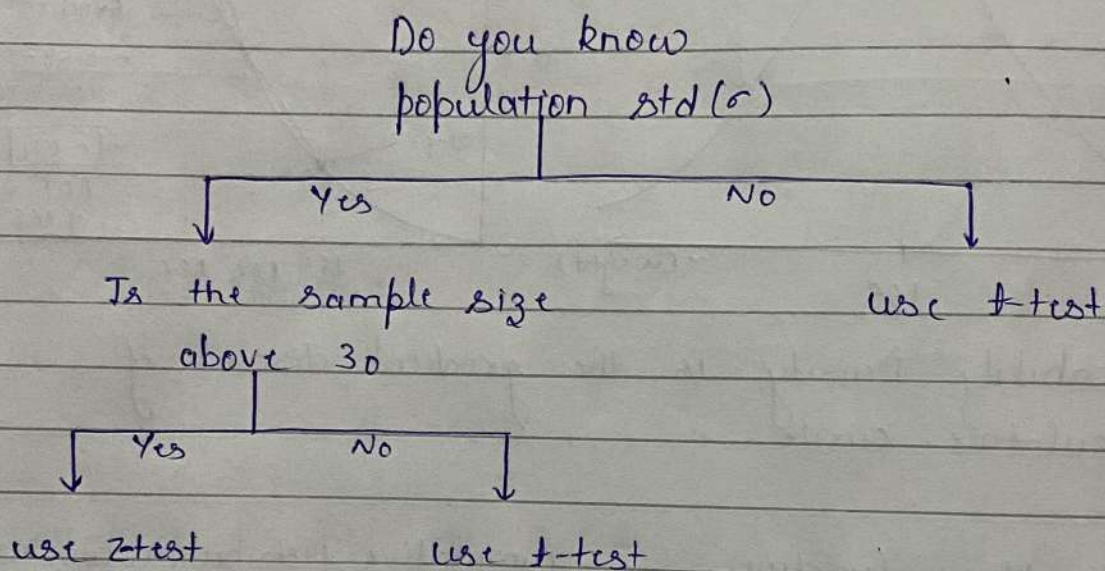 Do you know
population std (σ)
Yes
No
Is the sample size
above 30
use t-test
Yes
No
use z-test
use t-test